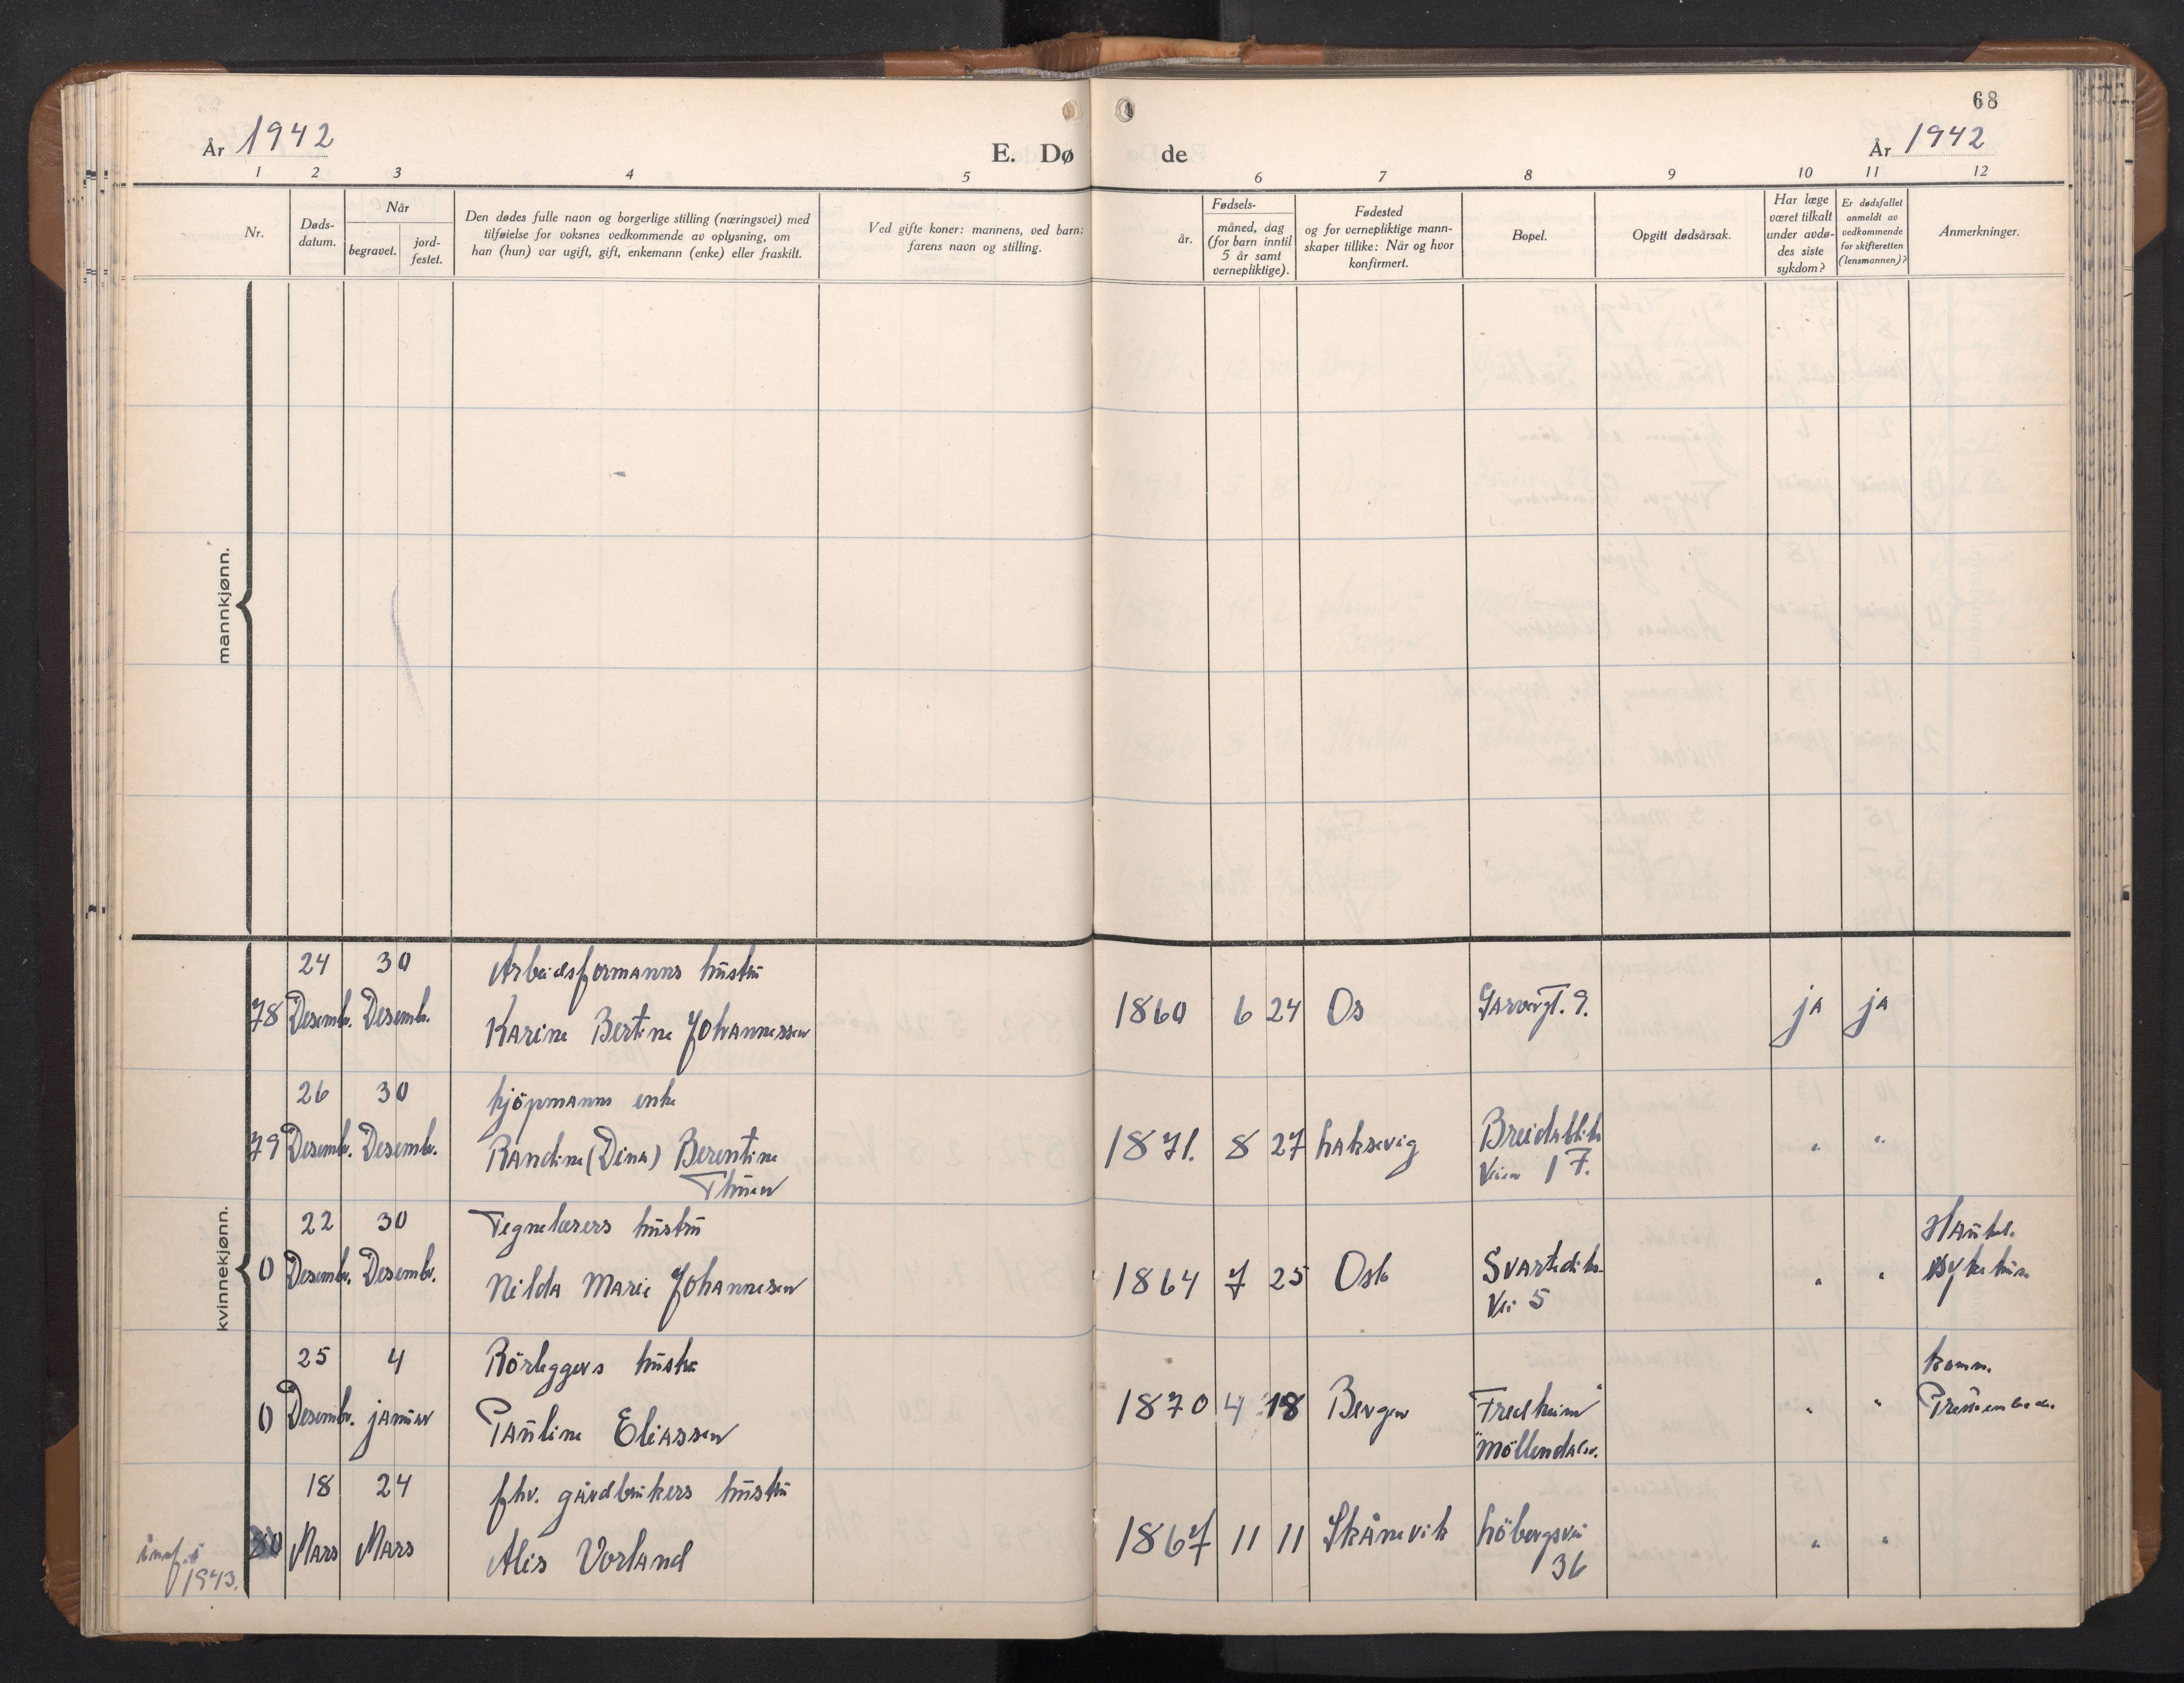 68
År 1942
E. Dø de
År 1942
1 2 3 4 5 6 7 8 9 10 11 12
Nr.
Døds-
datum.
Når
begravet.
jord-
festet.
Den dødes fulle navn og borgerlige stilling (næringsvei) med
tilføielse for voksnes vedkommende av oplysning, om
han (hun) var ugift, gift, enkemann (enke) eller fraskilt.
Ved gifte koner: mannens, ved barn:
farens navn og stilling.
Fødsels-
år.
måned, dag
(for barn inntil
5 år samt
vernepliktige).
Fødested
og for vernepliktige mann-
skaper tillike: Når og hvor
konfirmert.
Bopel.
Opgitt dødsårsak.
Har læge
været tilkalt
under avdø-
des siste
sykdom?
Er dødsfallet
anmeldt av
vedkommende
for skifteretten
(lensmannen)?
Anmerkninger.
mannkjønn.
kvinnekjønn.
24 30 Arbeidsformanns hustru
78 Desemb. Desemb. Karine Bertine Johannessen 1860 6 24 Os Garvergt. 9. ja ja
26 30 kjöpmanns enke
79 Desemb. Desemb. Randine (Dina) Berentine 1871. 8 27 Laksevig Breidabliks
Thuen veien 17. " "
22 30 Tegnelærers hustru Haukel.
0 Desemb. Desemb. Nilda Marie Johannesen 1864 7 25 Oslo Svartediks- " " sykehus
Vei 5
25 4 Rörleggers hustru
0 Desemb. januar Pauline Eliassen 1870 4 18 Bergen "Fredheim" " "
Möllendalsv.
18 24 fhv. gårdbrukers hustru
80 Mars Mars Alis Vorland 1867 11 11 Skånevik Löbergsvei " "
36
innf. i
1943.